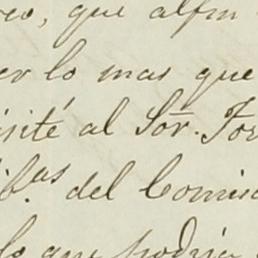 que alfin
er lo mas que
isité al Sor. For
if.as del Comis
lo que podria